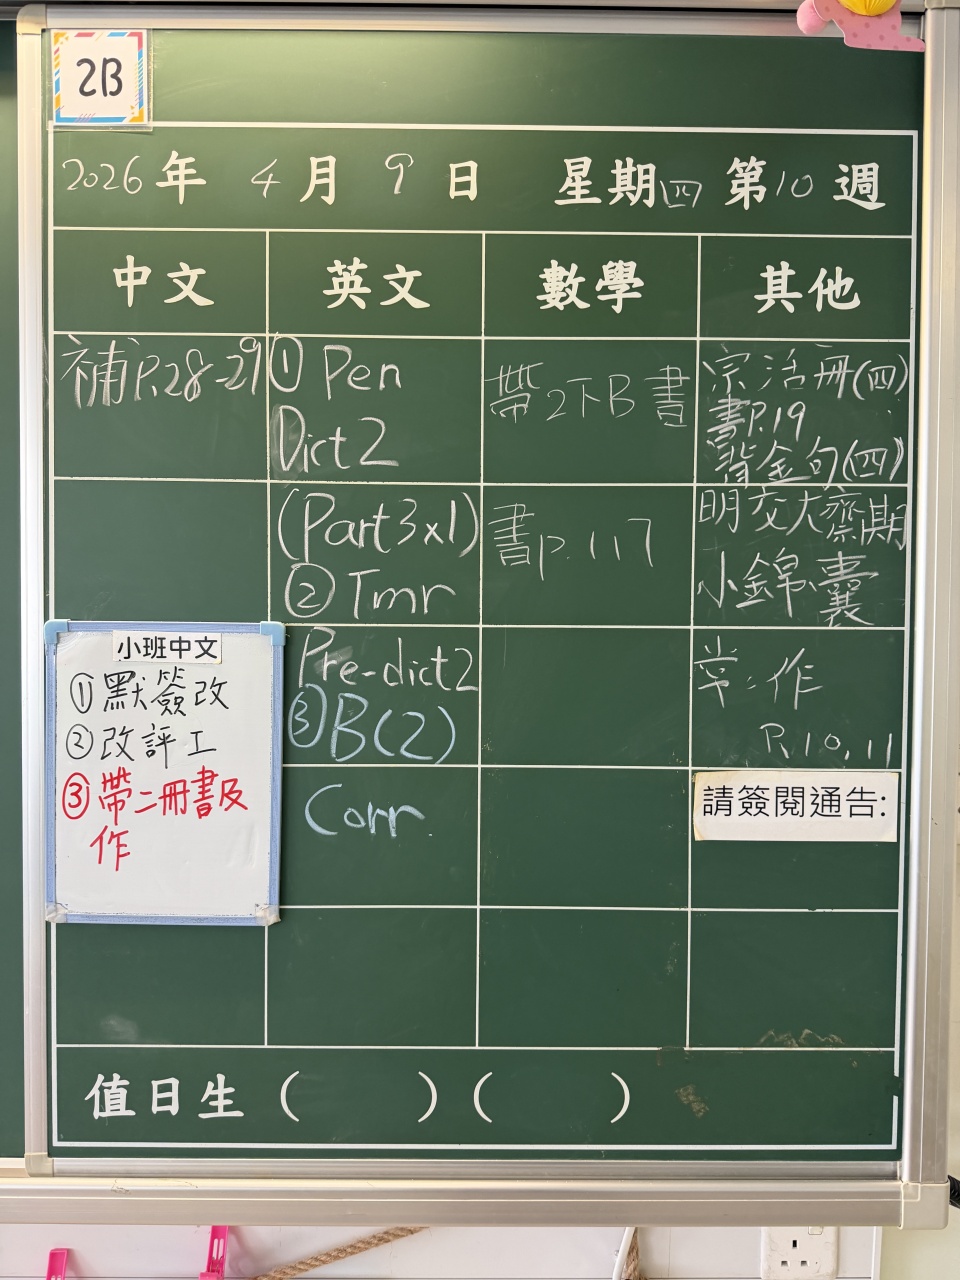 2B
2026年 4月 9日 星期四 第10週
中文
英文
數學
其他
補P.28-29
① Pen
Dict 2
(Part3x1)
② Tmr
Pre-dict2
③ B(2)
Corr.
帶2下B書
書p.117
宗活冊(四)
書P.19
背金句(四)
明交大齋期
小錦囊
常:作
P.10,11
請簽閱通告:
小班中文
①默簽改
②改評工
③帶二冊書及
作
值日生 (    ) (    )